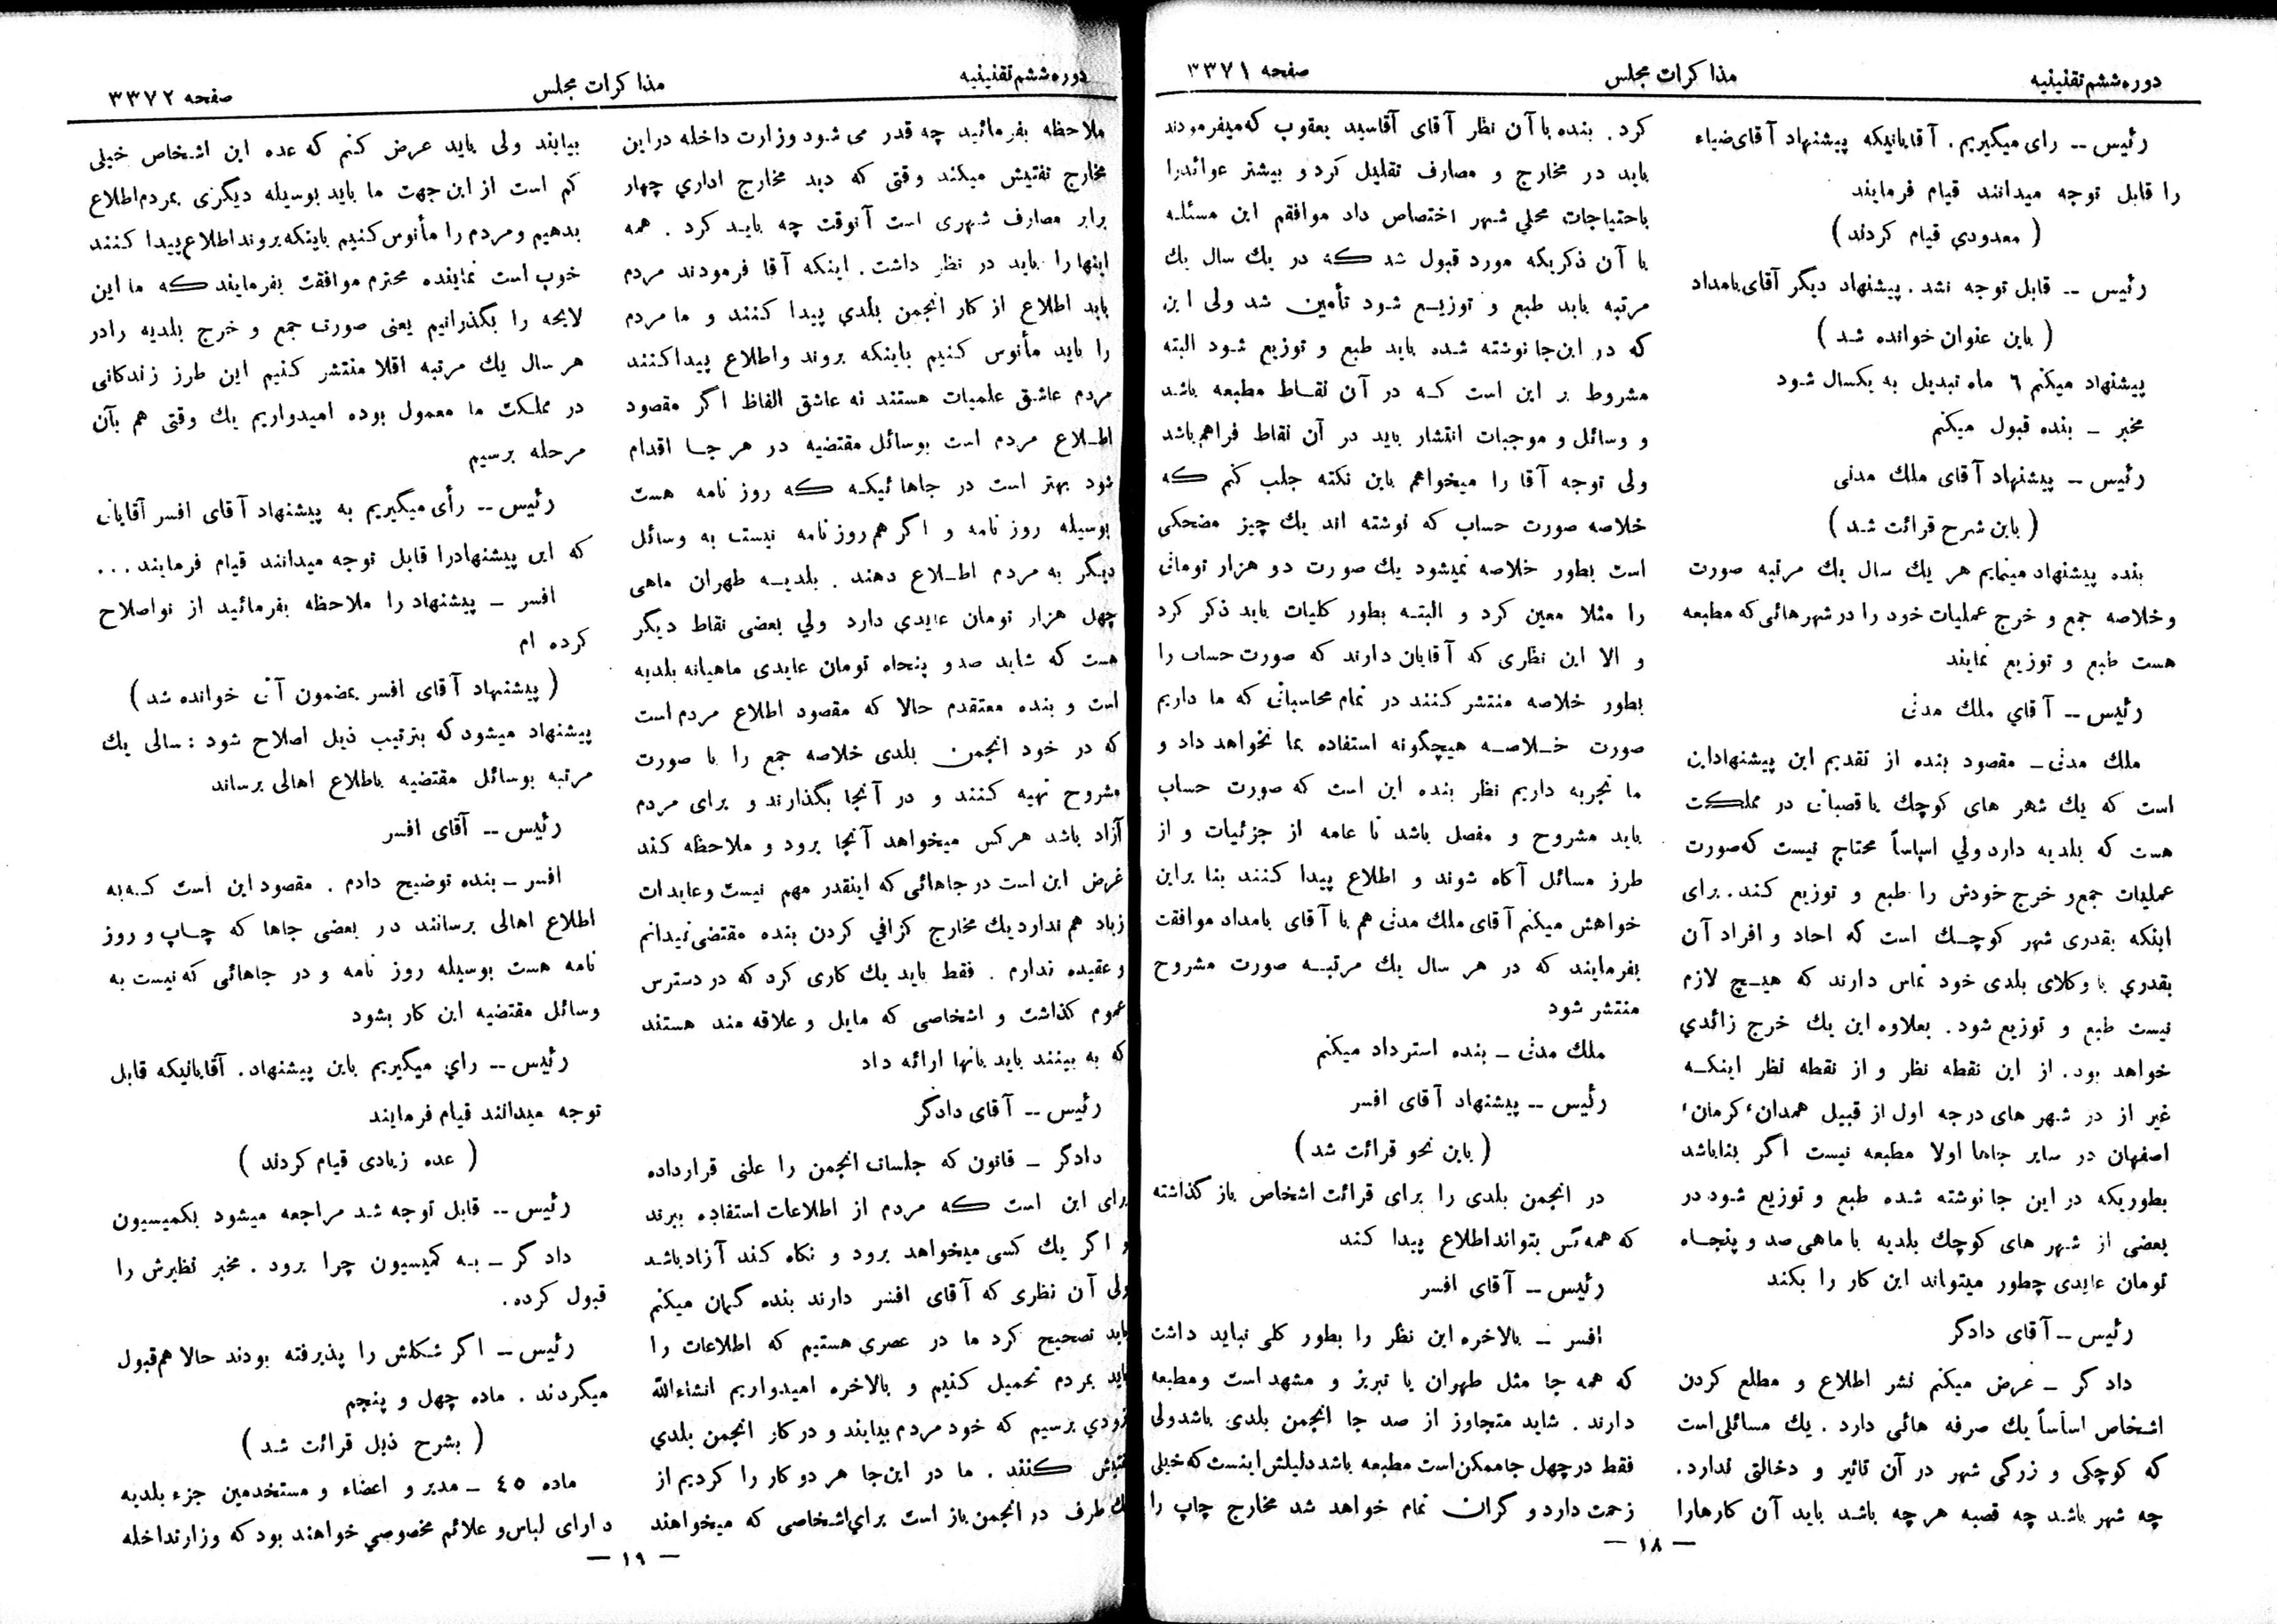 دوره ششم تقنینیه
مذاکرات مجلس
صفحه ۳۳۷۱
رئیس -- رای میگیریم . آقایانیکه پیشنهاد آقای ضیاء
را قابل توجه میدانند قیام فرمایند
( معدودی قیام کردند )
رئیس -- قابل توجه نشد . پیشنهاد دیگر آقای بامداد
( باین عنوان خوانده شد )
پیشنهاد میکنم ٦ ماه تبدیل به یکسال شود
مخبر - بنده قبول میکنم
رئیس -- پیشنهاد آقای ملك مدنی
( باین شرح قرائت شد )
بنده پیشنهاد مینمایم هر یك سال یك مرتبه صورت
و خلاصه جمع و خرج عملیات خود را در شهر هائی که مطبعه
هست طبع و توزیع نمایند
رئیس -- آقاي ملك مدنی
ملك مدنی - مقصود بنده از تقدیم این پیشنهاد این
است که یك شهر های کوچك یا قصباتی در مملکت
هست که بلدیه دارد ولي اساساً محتاج نیست که صورت
عملیات جمع و خرج خودش را طبع و توزیع کند . برای
اینکه بقدری شهر کوچـك است که احاد و افراد آن
بقدري با وکلای بلدی خود تماس دارند که هیـچ لازم
نیست طبع و توزیع شود . بعلاوه این یك خرج زائدي
خواهد بود . از این نقطه نظر و از نقطه نظر اینکـه
غیر از در شهر های درجه اول از قبیل همدان ، کرمان ،
اصفهان در سایر جاها اولا مطبعه نیست اگر بنا باشد
بطوریکه در این جا نوشته شده طبع و توزیع شود در
بعضی از شهر های کوچك بلدیه با ماهی صد و پنجـاه
تومان عایدی چطور میتواند این کار را بکند
رئیس -- آقای دادگر
دادگر - عرض میکنم نشر اطلاع و مطلع کردن
اشخاص اساساً یك صرفه هائی دارد . یك مسائلی است
که کوچکی و زرگی شهر در آن تاثیر و دخالتی ندارد .
چه شهر باشد چه قصبه هر چه باشد باید آن کارها را
کرد . بنده با آن نظر آقای آقاسید یعقوب که میفرمودند
باید در مخارج و مصارف تقلیل کرد و بیشتر عوائد را
باحتیاجات محلي شهر اختصاص داد موافقم این مسئلـه
با آن ذکریکه مورد قبول شد کـه در یك سال یك
مرتبه باید طبع و توزیـع شود تأمین شد ولی این
که در این جا نوشته شده باید طبع و توزیع شود البته
مشروط بر این است کـه در آن نقـاط مطبعه باشد
و وسائل و موجبات انتشار باید در آن نقاط فراهم باشد
ولی توجه آقا را میخواهم باین نکته جلب کنم کـه
خلاصه صورت حساب که نوشته اند یك چیز مضحکی
است بطور خلاصه نمیشود یك صورت دو هزار تومانی
را مثلا معین کرد و البتـه بطور کلیات باید ذکر کرد
و الا این نظری که آقایان دارند که صورت حساب را
بطور خلاصه منتشر کنند در تمام محاسباتی که ما داریم
صورت خـلاصـه هیچگونه استفاده بما نخواهد داد و
ما تجربه داریم نظر بنده این است که صورت حساب
باید مشروح و مفصل باشد تا عامه از جزئیات و از
طرز مسائل آگاه شوند و اطلاع پیدا کنند بنا براین
خواهش میکنم آقای ملك مدنی هم با آقای بامداد موافقت
بفرمایند که در هر سال یك مرتبـه صورت مشروح
منتشر شود
ملك مدنی - بنده استرداد میکنم
رئیس -- پیشنهاد آقای افسر
( باین نحو قرائت شد )
در انجمن بلدی را برای قرائت اشخاص باز گذاشته
که همه کس بتواند اطلاع پیدا کند
رئیس -- آقای افسر
افسر - بالاخره این نظر را بطور کلی نباید داشت
که همه جا مثل طهران یا تبریز و مشهد است و مطبعه
دارند . شاید متجاوز از صد جا انجمن بلدی باشد ولی
فقط در چهل جا ممکن است مطبعه باشد دلیلش اینست که خیلی
زحمت دارد و گران تمام خواهد شد مخارج چاپ را
— ۱۸ —
دوره ششم تقنینیه
مذاکرات مجلس
صفحه ۳۳۷۲
ملاحظه بفرمائید چه قدر می شود وزارت داخله در این
مخارج تفتیش میکند وقتی که دید مخارج اداري چهار
برابر مصارف شهری است آنوقت چه بایـد کرد . همه
اینها را باید در نظر داشت . اینکه آقا فرمودند مردم
باید اطلاع از کار انجمن بلدي پیدا کنند و ما مردم
را باید مأنوس کنیم باینکه بروند و اطلاع پیدا کنند
مردم عاشق علمیات هستند نه عاشق الفاظ اگر مقصود
اطـلاع مردم است بوسائل مقتضیه در هر جـا اقدام
شود بهتر است در جاهائیکـه کـه روز نامه هست
بوسیله روز نامه و اگر هم روز نامه نیست به وسائل
دیگر به مردم اطـلاع دهند . بلدیـه طهران ماهی
چهل هزار تومان عایدي دارد ولي بعضی نقاط دیگر
هست که شاید صد و پنجاه تومان عایدی ماهیانه بلدیه
است و بنده معتقدم حالا که مقصود اطلاع مردم است
که در خود انجمن بلدی خلاصه جمع را با صورت
مشروح تهیه کنند و در آنجا بگذارند و برای مردم
آزاد باشد هر کس میخواهد آنجا برود و ملاحظه کند
غرض این است در جاهائی که اینقدر مهم نیست و عایدات
زیاد هم ندارد یك مخارج گزافي کردن بنده مقتضی نمیدانم
و عقیده ندارم . فقط باید یك کاری کرد که در دسترس
عموم گذاشت و اشخاصی که مایل و علاقه مند هستند
که به بینند باید بآنها ارائه داد
رئیس -- آقای دادگر
دادگر - قانون که جلسات انجمن را علنی قرار داده
برای این است کـه مردم از اطلاعات استفاده ببرند
و اگر یك کسی میخواهد برود و نگاه کند آزاد باشد
ولی آن نظری که آقای افسر دارند بنده گمان میکنم
باید تصحیح کرد ما در عصری هستیم که اطلاعات را
باید بمردم تحمیل کنیم و بالاخره امیدواریم انشاءالله
بزودي برسیم که خود مردم بیایند و در کار انجمن بلدي
تفتیش کنند . ما در این جا هر دو کار را کردیم از
یك طرف در انجمن باز است براي اشخاصی که میخواهند
بیایند ولی باید عرض کنم که عده این اشخاص خیلی
کم است از این جهت ما باید بوسیله دیگری بمردم اطلاع
بدهیم و مردم را مأنوس کنیم باینکه بروند اطلاع پیدا کنند
خوب است نماینده محترم موافقت بفرمایند کـه ما این
لایحه را بگذرانیم یعنی صورت جمع و خرج بلدیه را در
هر سال یك مرتبه اقلا منتشر کنیم این طرز زندگانی
در مملکت ما معمول بوده امیدواریم یك وقتی هم بآن
مرحله برسیم
رئیس -- رأی میگیریم به پیشنهاد آقای افسر آقایانی
که این پیشنهاد را قابل توجه میدانند قیام فرمایند ...
افسر - پیشنهاد را ملاحظه بفرمائید از نو اصلاح
کرده ام
( پیشنهاد آقای افسر بمضمون آتی خوانده شد )
پیشنهاد میشود که بترتیب ذیل اصلاح شود : سالی یك
مرتبه بوسائل مقتضیه باطلاع اهالی برساند
رئیس -- آقای افسر
افسر - بنده توضیح دادم . مقصود این است کـه به
اطلاع اهالی برسانند در بعضی جاها که چـاپ و روز
نامه هست بوسیله روز نامه و در جاهائی که نیست به
وسائل مقتضیه این کار بشود
رئیس -- راي میگیریم باین پیشنهاد . آقایانیکه قابل
توجه میدانند قیام فرمایند
( عده زیادی قیام کردند )
رئیس -- قابل توجه شد مراجعه میشود بکمیسیون
دادگر - بـه کمیسیون چرا برود . مخبر نظیرش را
قبول کرده .
رئیس -- اگر شکلش را پذیرفته بودند حالا هم قبول
میکردند . ماده چهل و پنجم
( بشرح ذیل قرائت شد )
ماده ٤٥ - مدیر و اعضاء و مستخدمین جزء بلدیه
دارای لباس و علائم مخصوصي خواهند بود که وزارتداخله
— ۱۹ —